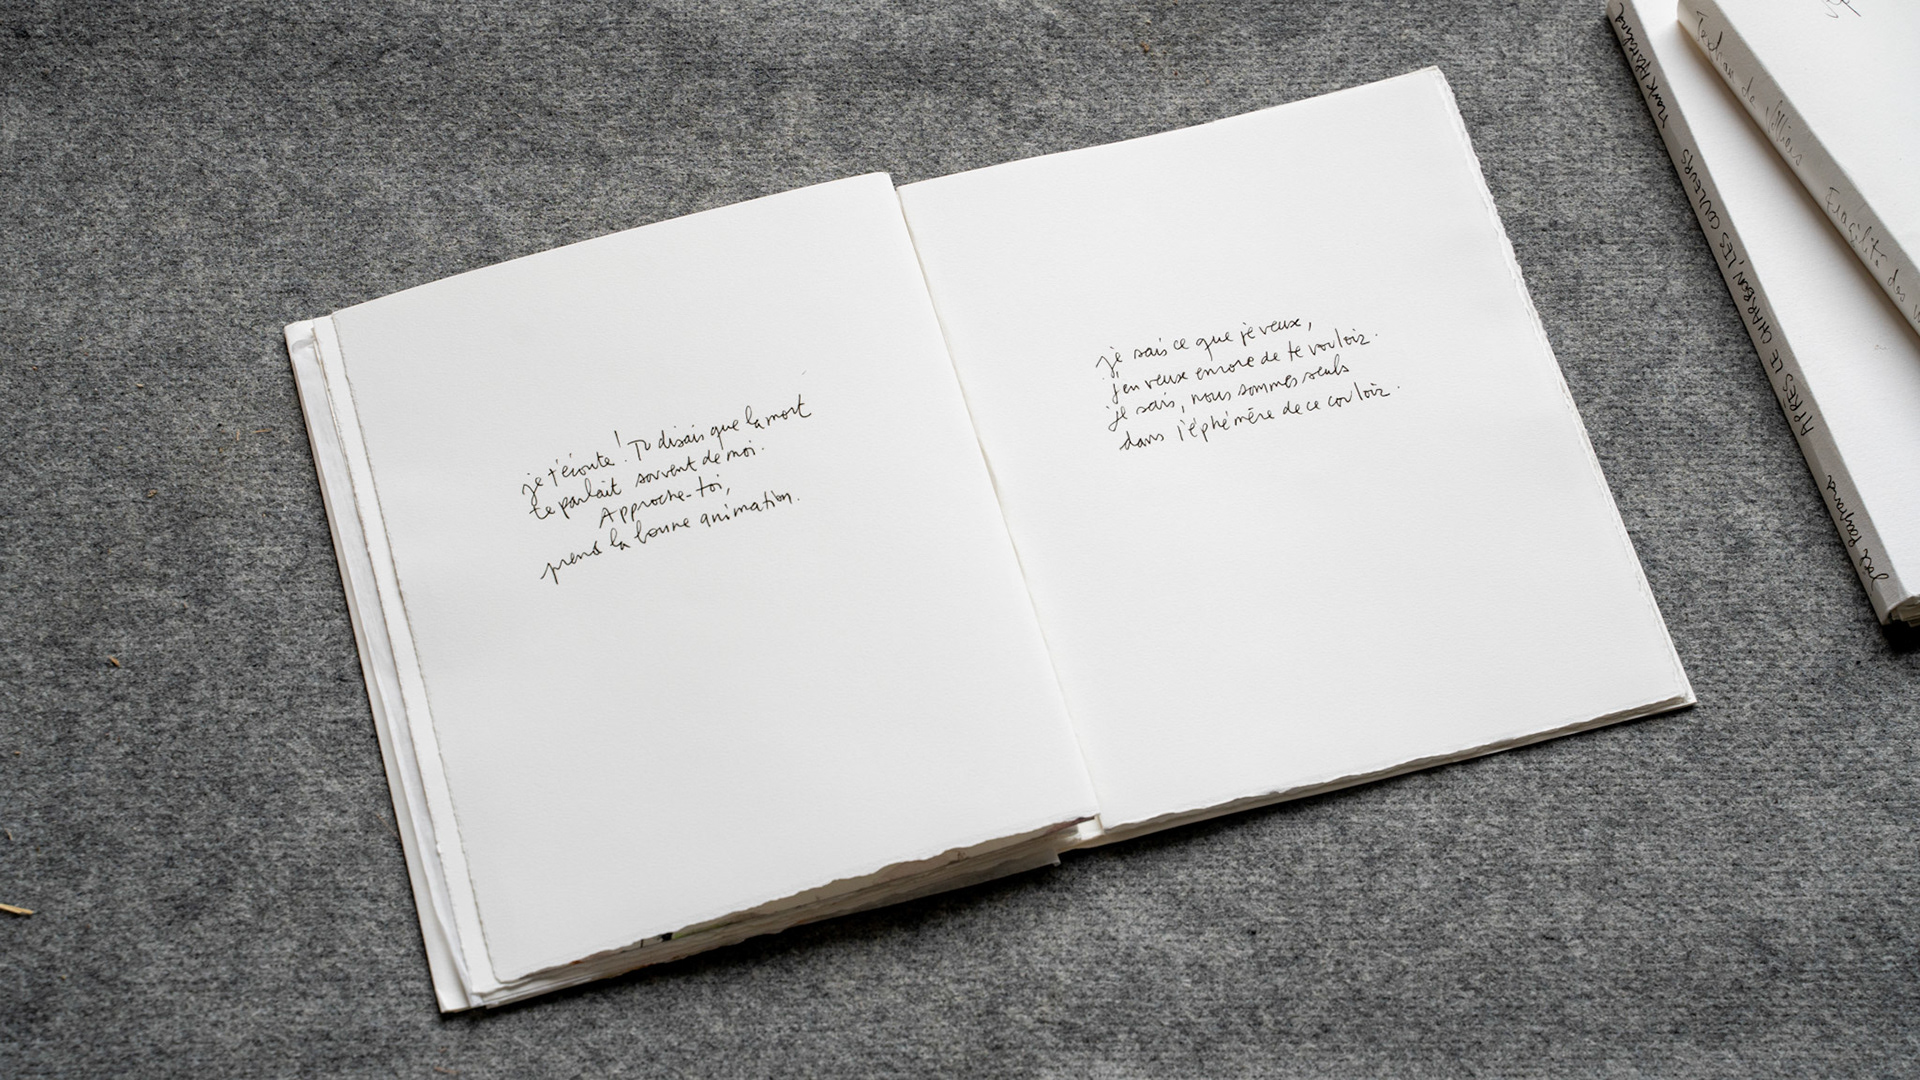 je t'écoute ! Tu disais que la mort
te parlait souvent de moi.
Approche-toi,
prend la bonne animation.
je sais ce que je veux,
j'en veux encore de te vouloir.
je sais, nous sommes seuls
dans l'éphémère de ce couloir.
APRÈS LE CHARBON, LES COULEURS
Fragilité des